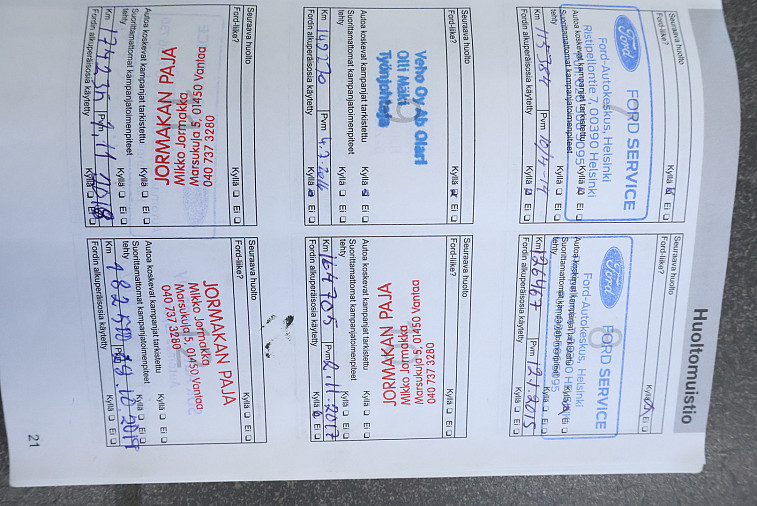 Huoltomuistio
Seuraava huolto
Ford-liike? Kyllä Ei
Ford FORD SERVICE
Ford-Autokeskus, Helsinki
Ristipellontie 7, 00390 Helsinki
Autoa koskevat kampanjat tarkistettu Kyllä Ei
Suorittamattomat kampanjatoimenpiteet
tehty Kyllä Ei
Km 115784 Pvm 10/4-14
Fordin alkuperäisosia käytetty Kyllä Ei
Seuraava huolto
Ford-liike? Kyllä Ei
8
Ford FORD SERVICE
Ford-Autokeskus, Helsinki
Autoa koskevat kampanjat tarkistettu Kyllä Ei
Suorittamattomat kampanjatoimenpiteet
tehty Kyllä Ei
Km 126467 Pvm 12.1.2015
Fordin alkuperäisosia käytetty Kyllä Ei
Seuraava huolto
Ford-liike? Kyllä Ei
Veho Oy Ab Olari
Olli Mäti
Työnjohtaja
Autoa koskevat kampanjat tarkistettu Kyllä Ei
Suorittamattomat kampanjatoimenpiteet
tehty Kyllä Ei
Km Pvm
Fordin alkuperäisosia käytetty Kyllä Ei
Seuraava huolto
Ford-liike? Kyllä Ei
JORMAKAN PAJA
Mikko Jormakka
Marsukuja 5, 01450 Vantaa
040 737 3280
Autoa koskevat kampanjat tarkistettu Kyllä Ei
Suorittamattomat kampanjatoimenpiteet
tehty Kyllä Ei
Km 164705 Pvm 2.11.2017
Fordin alkuperäisosia käytetty Kyllä Ei
Seuraava huolto
Ford-liike? Kyllä Ei
JORMAKAN PAJA
Mikko Jormakka
Marsukuja 5, 01450 Vantaa
040 737 3280
Autoa koskevat kampanjat tarkistettu Kyllä Ei
Suorittamattomat kampanjatoimenpiteet
tehty Kyllä Ei
Km 174235 Pvm
Fordin alkuperäisosia käytetty Kyllä Ei
Seuraava huolto
Ford-liike? Kyllä Ei
JORMAKAN PAJA
Mikko Jormakka
Marsukuja 5, 01450 Vantaa
040 737 3280
Autoa koskevat kampanjat tarkistettu Kyllä Ei
Suorittamattomat kampanjatoimenpiteet
tehty Kyllä Ei
Km 182410 Pvm
Fordin alkuperäisosia käytetty Kyllä Ei
21